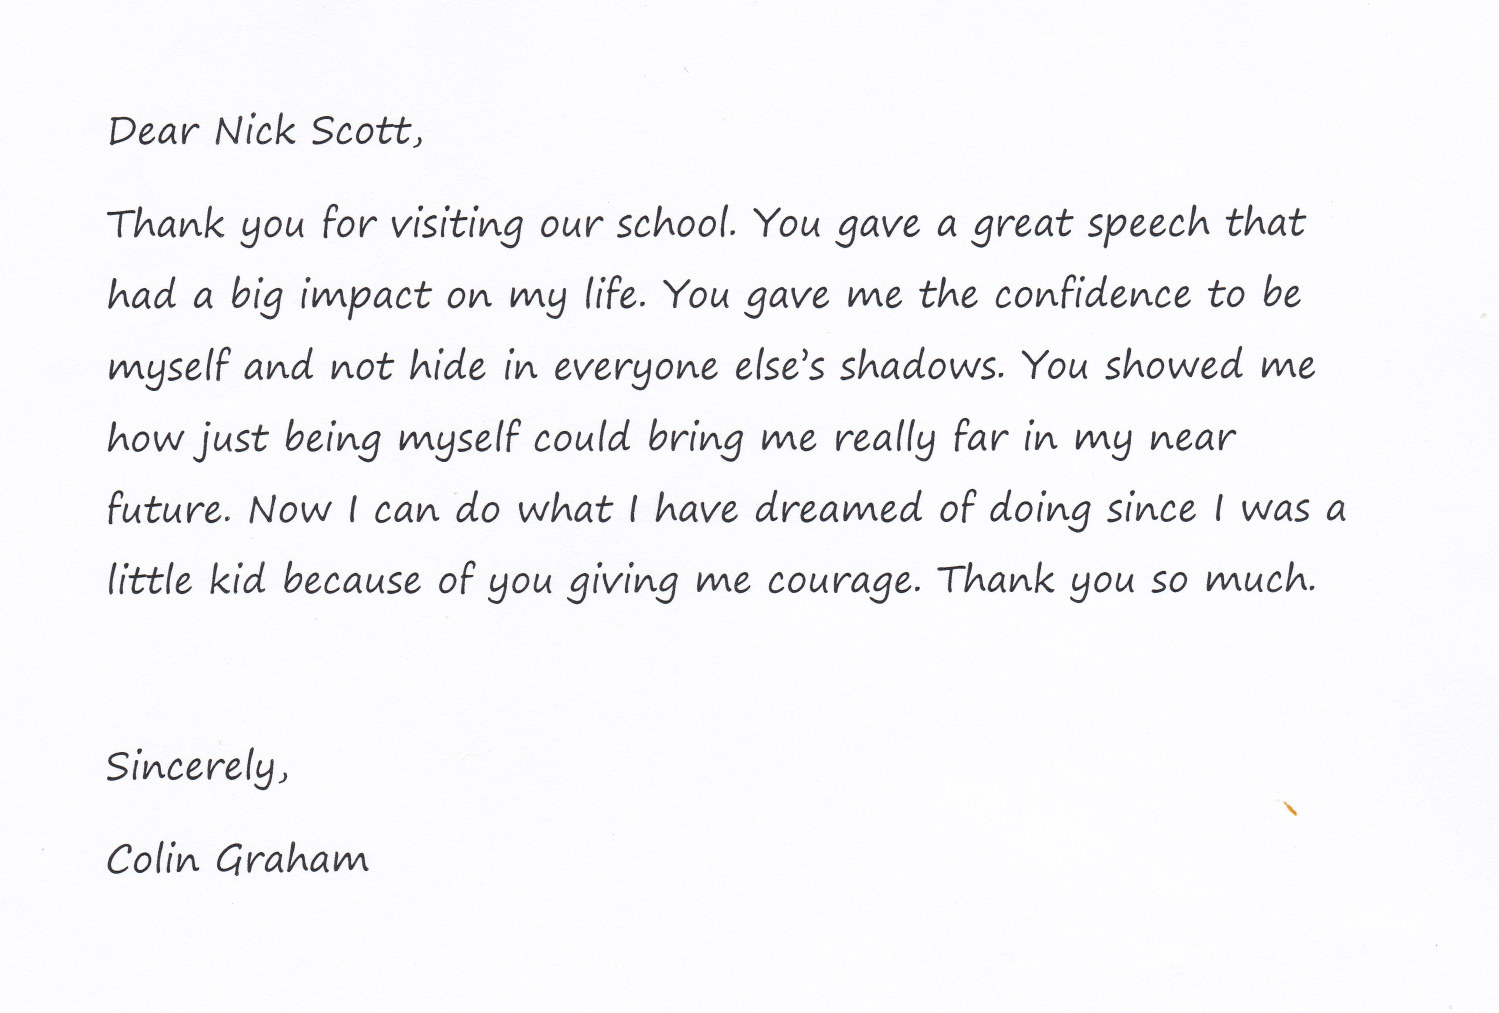 Dear Nick Scott,
Thank you for visiting our school. You gave a great speech that
had a big impact on my life. You gave me the confidence to be
myself and not hide in everyone else’s shadows. You showed me
how just being myself could bring me really far in my near
future. Now I can do what I have dreamed of doing since I was a
little kid because of you giving me courage. Thank you so much.
Sincerely,
Colin Graham